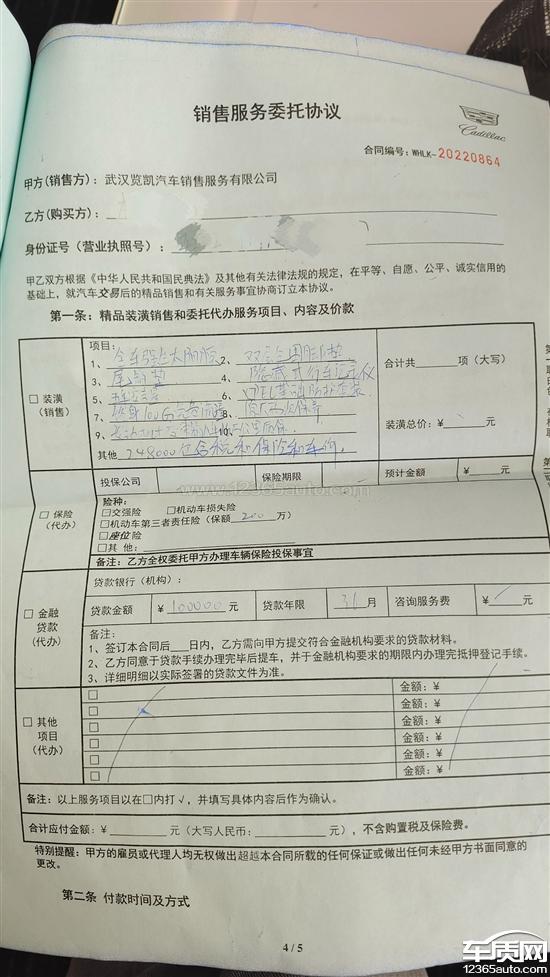 销售服务委托协议
Cadillac
合同编号：WHLK-20220864
甲方(销售方)：武汉览凯汽车销售服务有限公司
乙方(购买方)：
身份证号（营业执照号）：
甲乙双方根据《中华人民共和国民典法》及其他有关法律法规的规定，在平等、自愿、公平、诚实信用的
基础上，就汽车交易后的精品销售和有关服务事宜协商订立本协议。
第一条：精品装潢销售和委托代办服务项目、内容及价款
□ 装潢
(销售)
项目：
1、全车 2、双层全围脚垫
3、尾箱垫 4、隐藏式行车记录仪
5、 6、
7、终身100 8、
9、 10、
其他 248000包含税和保险和车价。
合计共 项（大写）
装潢总价：¥ 元
□ 保险
(代办)
投保公司 保险期限 预计金额 ¥ 元
险种：
□交强险 □机动车损失险
□机动车第三者责任险（保额200万）
□座位险
□其 他：
备注：乙方全权委托甲方办理车辆保险投保事宜
www.12365auto.com
□ 金融
贷款
(代办)
贷款银行（机构）：
贷款金额 ¥ 100000 元 贷款年限 36月 咨询服务费 ¥ 元
备注：
1、签订本合同后 日内，乙方需向甲方提交符合金融机构要求的贷款材料。
2、乙方同意于贷款手续办理完毕后提车，并于金融机构要求的期限内办理完抵押登记手续。
3、详细明细以实际签署的贷款文件为准。
□ 其他
项目
(代办)
□ 金额：¥
□ 金额：¥
□ 金额：¥
□ 金额：¥
□ 金额：¥
□ 金额：¥
备注：以上服务项目以在□内打√，并填写具体内容后作为确认。
合计应付金额：¥ 元（大写人民币： 元），不含购置税及保险费。
特别提醒：甲方的雇员或代理人均无权做出超越本合同所载的任何保证或做出任何未经甲方书面同意的
更改。
第二条 付款时间及方式
4 / 5
车质网
12365auto.com